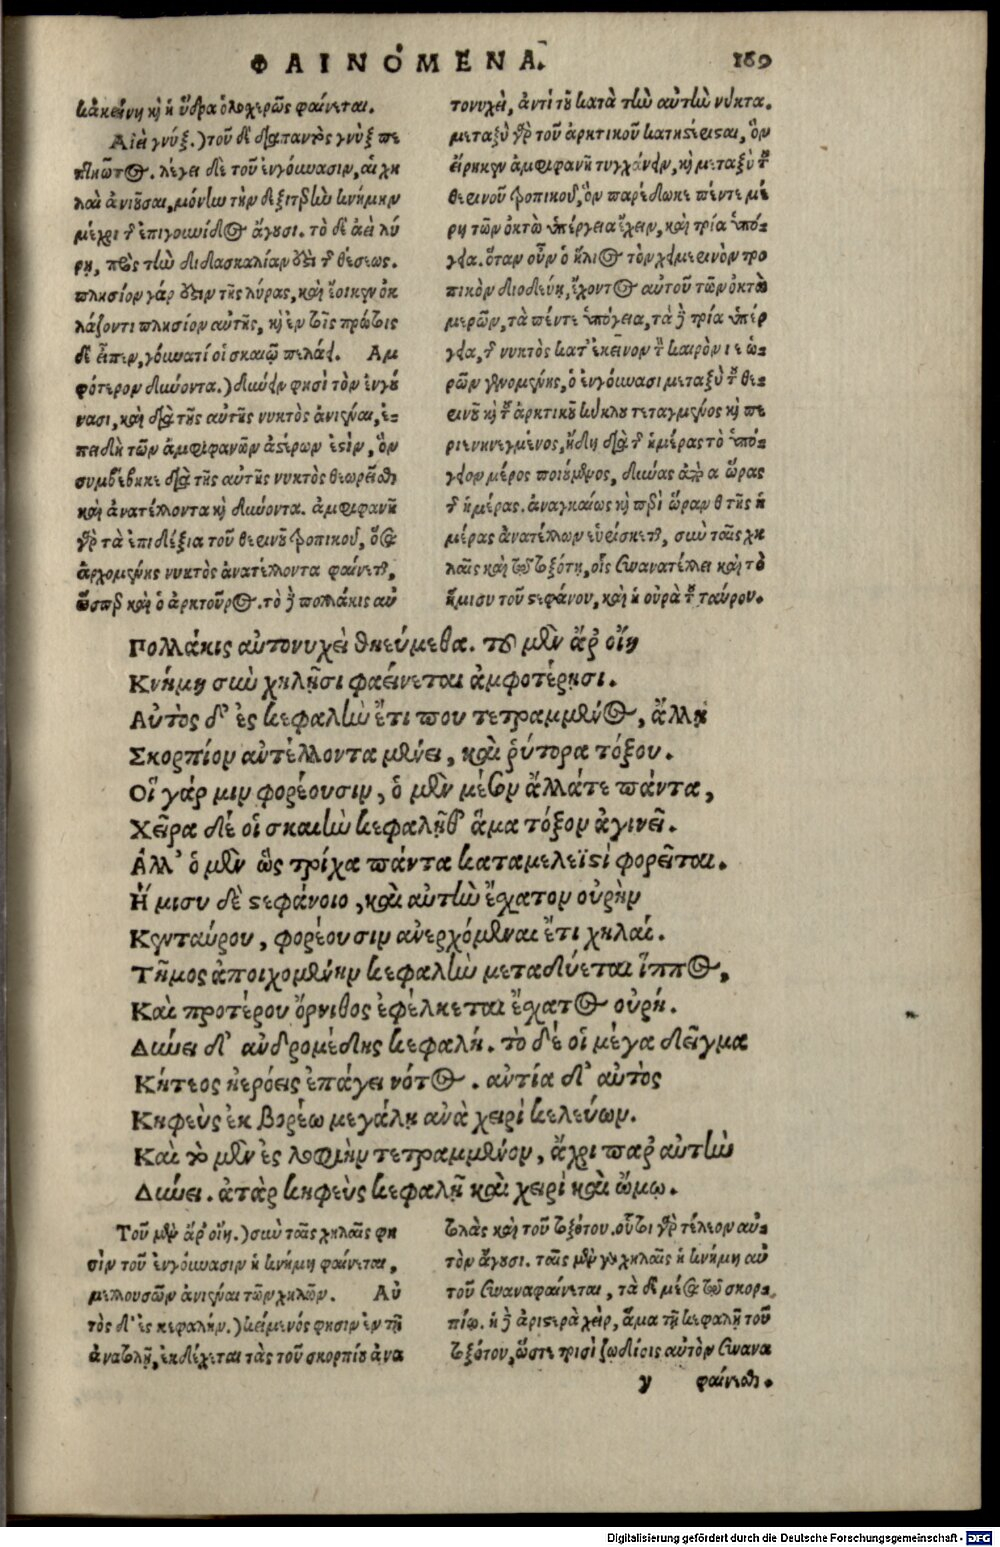 ΦΑΙΝΌΜΕΝΑ. 169
κἀκείνη κὴ ἡ ὕδρα ὁλοχερῶς φαίνεται.
Αἰεὶ γνύξ.) τοῦ δὲ διαπαντὸς γνὺξ πε
πλέγει δὲ τοῦ ἐνγόνασιν, αἱ χη
λαὶ ἀνιοῦσαι, μόνην τὴν δεξιτερὴν κνήμην
μέχρι τ ἐπιγουνίδος ἄγουσι. τὸ δὲ αἰεὶ λύ
ρῃ, πρὸς τὴν διδασκαλίαν ἐστὶ τ θέσεως.
πλησίον γάρ ἐστιν τῆς λύρας, καὶ ἔοικεν ὀκ
λάζοντι πλησίον αὐτῆς, κὴ ἐν τοῖς πρώτοις
δὲ εἶπεν, γόνατί οἱ σκαιῷ πελάει. Αμ
φότερον δύνοντα.) δύνειν φησὶ τὸν ἐνγό
νασι, καὶ διὰ τῆς αὐτῆς νυκτὸς ἀνιέναι, ἐ-
πειδὴ τῶν ἀμφιφανῶν ἀστέρων ἐστὶν, ὃν
συμβέβηκε διὰ τῆς αὐτῆς νυκτὸς θεωρεῖσθαι
καὶ ἀνατέλλοντα κὴ δύνοντα. ἀμφιφανῆ
γὰρ τὰ ἐπιδέξια τοῦ θερινοῦ τροπικοῦ, ὅσα
ἀρχομένης νυκτὸς ἀνατέλλοντα φαίνεται,
ὥσπερ καὶ ὁ ἀρκτοῦρος. τὸ δὲ πολλάκις αὐ
τονυχεὶ, ἀντὶ τοῦ κατὰ τὴν αὐτὴν νύκτα.
μεταξὺ γὰρ τοῦ ἀρκτικοῦ κατηστέρισται, ὃν
εἴρηκεν ἀμφιφανῆ τυγχάνειν, κὴ μεταξὺ τοῦ
θερινοῦ τροπικοῦ, ὃν παρέδωκε πέντε μέ
ρη τῶν ὀκτὼ ὑπέργεια ἔχειν, καὶ τρία ὑπό-
γεια. ὅταν οὖν ὁ ἥλιος τὸν χειμερινὸν τρο
πικὸν διοδεύῃ, ἔχοντος αὐτοῦ τῶν ὀκτὼ
μερῶν, τὰ πέντε ὑπόγεια, τὰ δὲ τρία ὑπέρ
γεια, τ νυκτὸς κατ' ἐκεῖνον τὸν καιρὸν ιε ὡ-
ρῶν γενομένης, ὁ ἐνγόνασι μεταξὺ τοῦ θε-
ρινοῦ κὴ τοῦ ἀρκτικοῦ κύκλου τεταγμένος κὴ πε
ριενηνεγμένος, ἤδη διὰ τ ἡμέρας τὸ ὑπό-
γειον μέρος ποιούμενος, δύνας α ὥρας
τ ἡμέρας. ἀναγκαίως κὴ περὶ ὥραν θ τῆς ἡ
μέρας ἀνατέλλων εὑρίσκεται, σὺν ταῖς χη
λαῖς καὶ τῷ τοξότῃ, οἷς συνανατέλλει καὶ τὸ
ἥμισυ τοῦ στεφάνου, καὶ ἡ οὐρὰ τοῦ ταύρου.
Πολλάκις αὐτονυχεὶ θηεύμεθα. τοῦ μὲν ἄρ' οἴη
Κνήμη σὺν χηλῇσι φαείνεται ἀμφοτέρῃσι.
Αὐτὸς δ' ἐς κεφαλὴν ἔτι που τετραμμένος, ἄλλῃ
Σκορπίον ἀντέλλοντα μένει, καὶ ῥύτορα τόξου.
Οἵ γάρ μιν φορέουσιν, ὁ μὲν μέσον ἄλλάτε πάντα,
Χεῖρα δέ οἱ σκαιὴν κεφαλῇθ' ἅμα τόξον ἀγινεῖ.
Ἀλλ' ὁ μὲν ὣς τρίχα πάντα καταμελεϊστὶ φορεῖται.
Ἥ μισυ δὲ στεφάνοιο, καὶ αὐτὴν ἔσχατον οὐρὴν
Κενταύρου, φορέουσιν ἀνερχόμεναι ἔτι χηλαί.
Τῆμος ἀποιχομένην κεφαλὴν μεταδύεται ἵππος,
Καὶ προτέρου ὄρνιθος ἐφέλκεται ἔσχατος οὐρή.
Δύνει δ' ἀνδρομέδης κεφαλή. τὸ δέ οἱ μέγα δεῖγμα
Κήτεος ἠερόεις ἐπάγει νότος. ἀντία δ' αὐτὸς
Κηφεὺς ἐκ βορέω μεγάλῃ ἀνὰ χειρὶ κελεύων.
Καὶ τὸ μὲν ἐς λοφιὴν τετραμμένον, ἄχρι παρ' αὐτὴν
Δύνει. ἀτὰρ κηφεὺς κεφαλῇ καὶ χειρὶ καὶ ὤμῳ.
Τοῦ μὲν ἄρ' οἴη.) σὺν ταῖς χηλαῖς φη
σὶν τοῦ ἐνγόνασιν ἡ κνήμη φαίνεται,
μελλουσῶν ἀνιέναι τῶν χηλῶν. Αὐ
τὸς δ' ἐς κεφαλήν.) κείμενός φησιν ἐν τῇ
ἀνατολῇ, ἐκδέχεται τὰς τοῦ σκορπίου ἀνα
τολὰς καὶ τοῦ τοξότου. οὗτοι γὰρ τέλεον αὐ-
τὸν ἄγουσι. ταῖς μὲν γὰρ χηλαῖς ἡ κνήμη αὐ
τοῦ συναναφαίνεται, τὰ δὲ μέσα τῷ σκορ-
πίῳ. ἡ δὲ ἀριστερὰ χεὶρ, ἅμα τῇ κεφαλῇ τοῦ
τοξότου, ὥστε τρισὶ ζωδίοις αὐτὸν συνανα
y φαίνεσθαι.
Digitalisierung gefördert durch die Deutsche Forschungsgemeinschaft - DFG